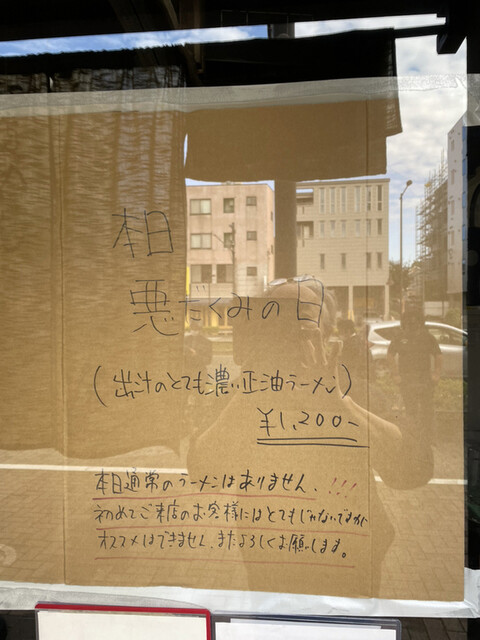 本日
悪だくみの日
(出汁のとても濃い正油ラーメン)
¥1,200-
本日通常のラーメンはありません、!!!
初めてご来店のお客様にはとてもじゃないですが
オススメはできません、またよろしくお願いします。